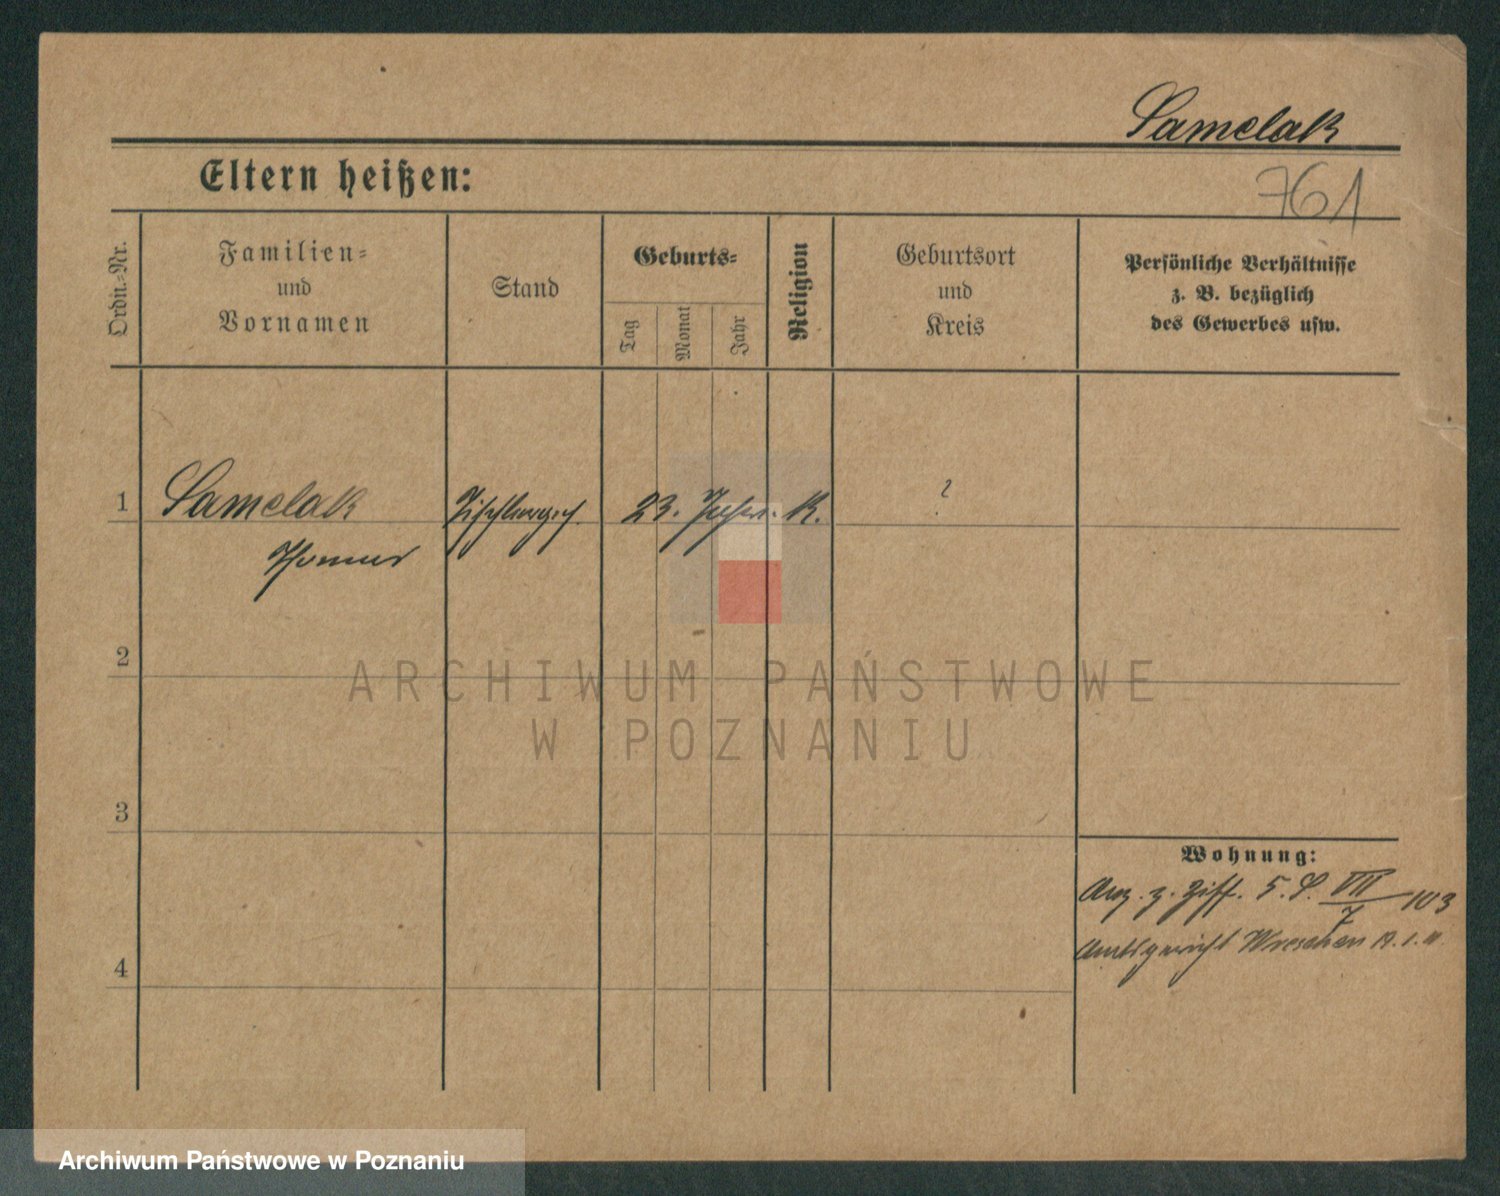 Samelak
Eltern heißen:
761
Ordn.-Nr.
Familien-
und
Vornamen
Stand
Geburts-
Tag
Monat
Jahr
Religion
Geburtsort
und
Kreis
Persönliche Verhältnisse
z. B. bezüglich
des Gewerbes usw.
1 Samelak Tischlerges. 23. Jahre. K. ?
Thomas
2
ARCHIWUM PAŃSTWOWE
W POZNANIU
3
Wohnung:
Anz. z. Ziff. 5. P. VIII/7 103
Amtsgericht Wreschen
4
Archiwum Państwowe w Poznaniu